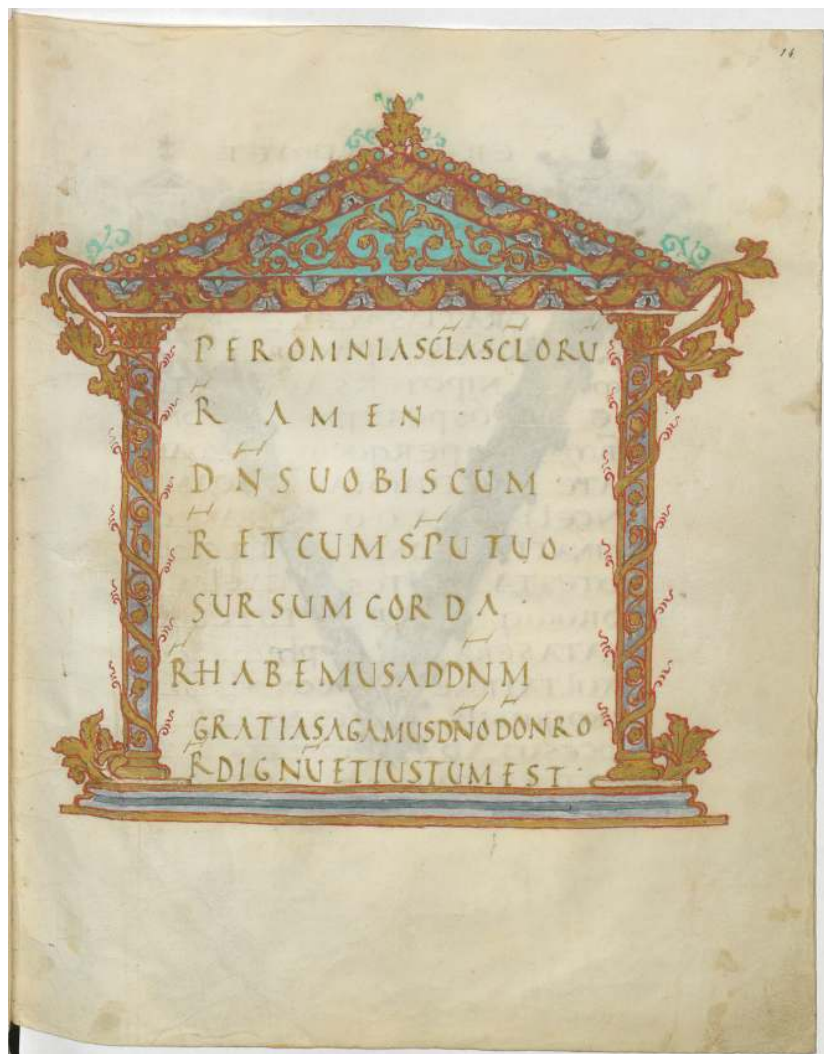 14
PER OMNIA SCLA SCLORU
R AMEN
DNS UOBISCUM
R ET CUM SPU TUO
SURSUM CORDA
R HABEMUS AD DNM
GRATIAS AGAMUS DNO DO NRO
R DIGNU ET IUSTUM EST